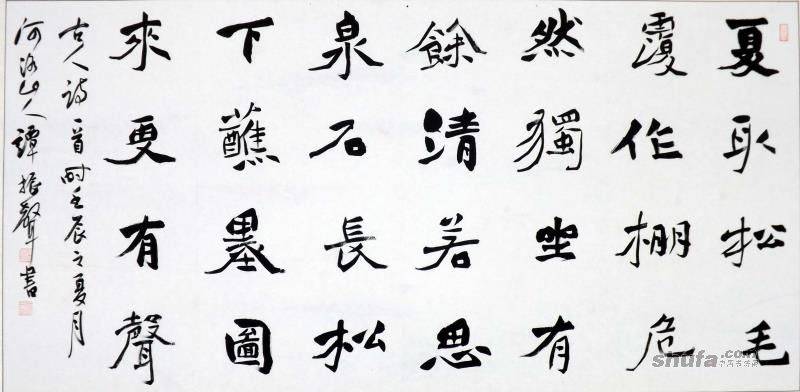 夏取松毛
覆作棚危
然獨坐有
餘清若思
泉石長松
下醮墨圖
來更有聲
古人詩一首時壬辰之夏月
河洛山人譚振聲書
shufa.com